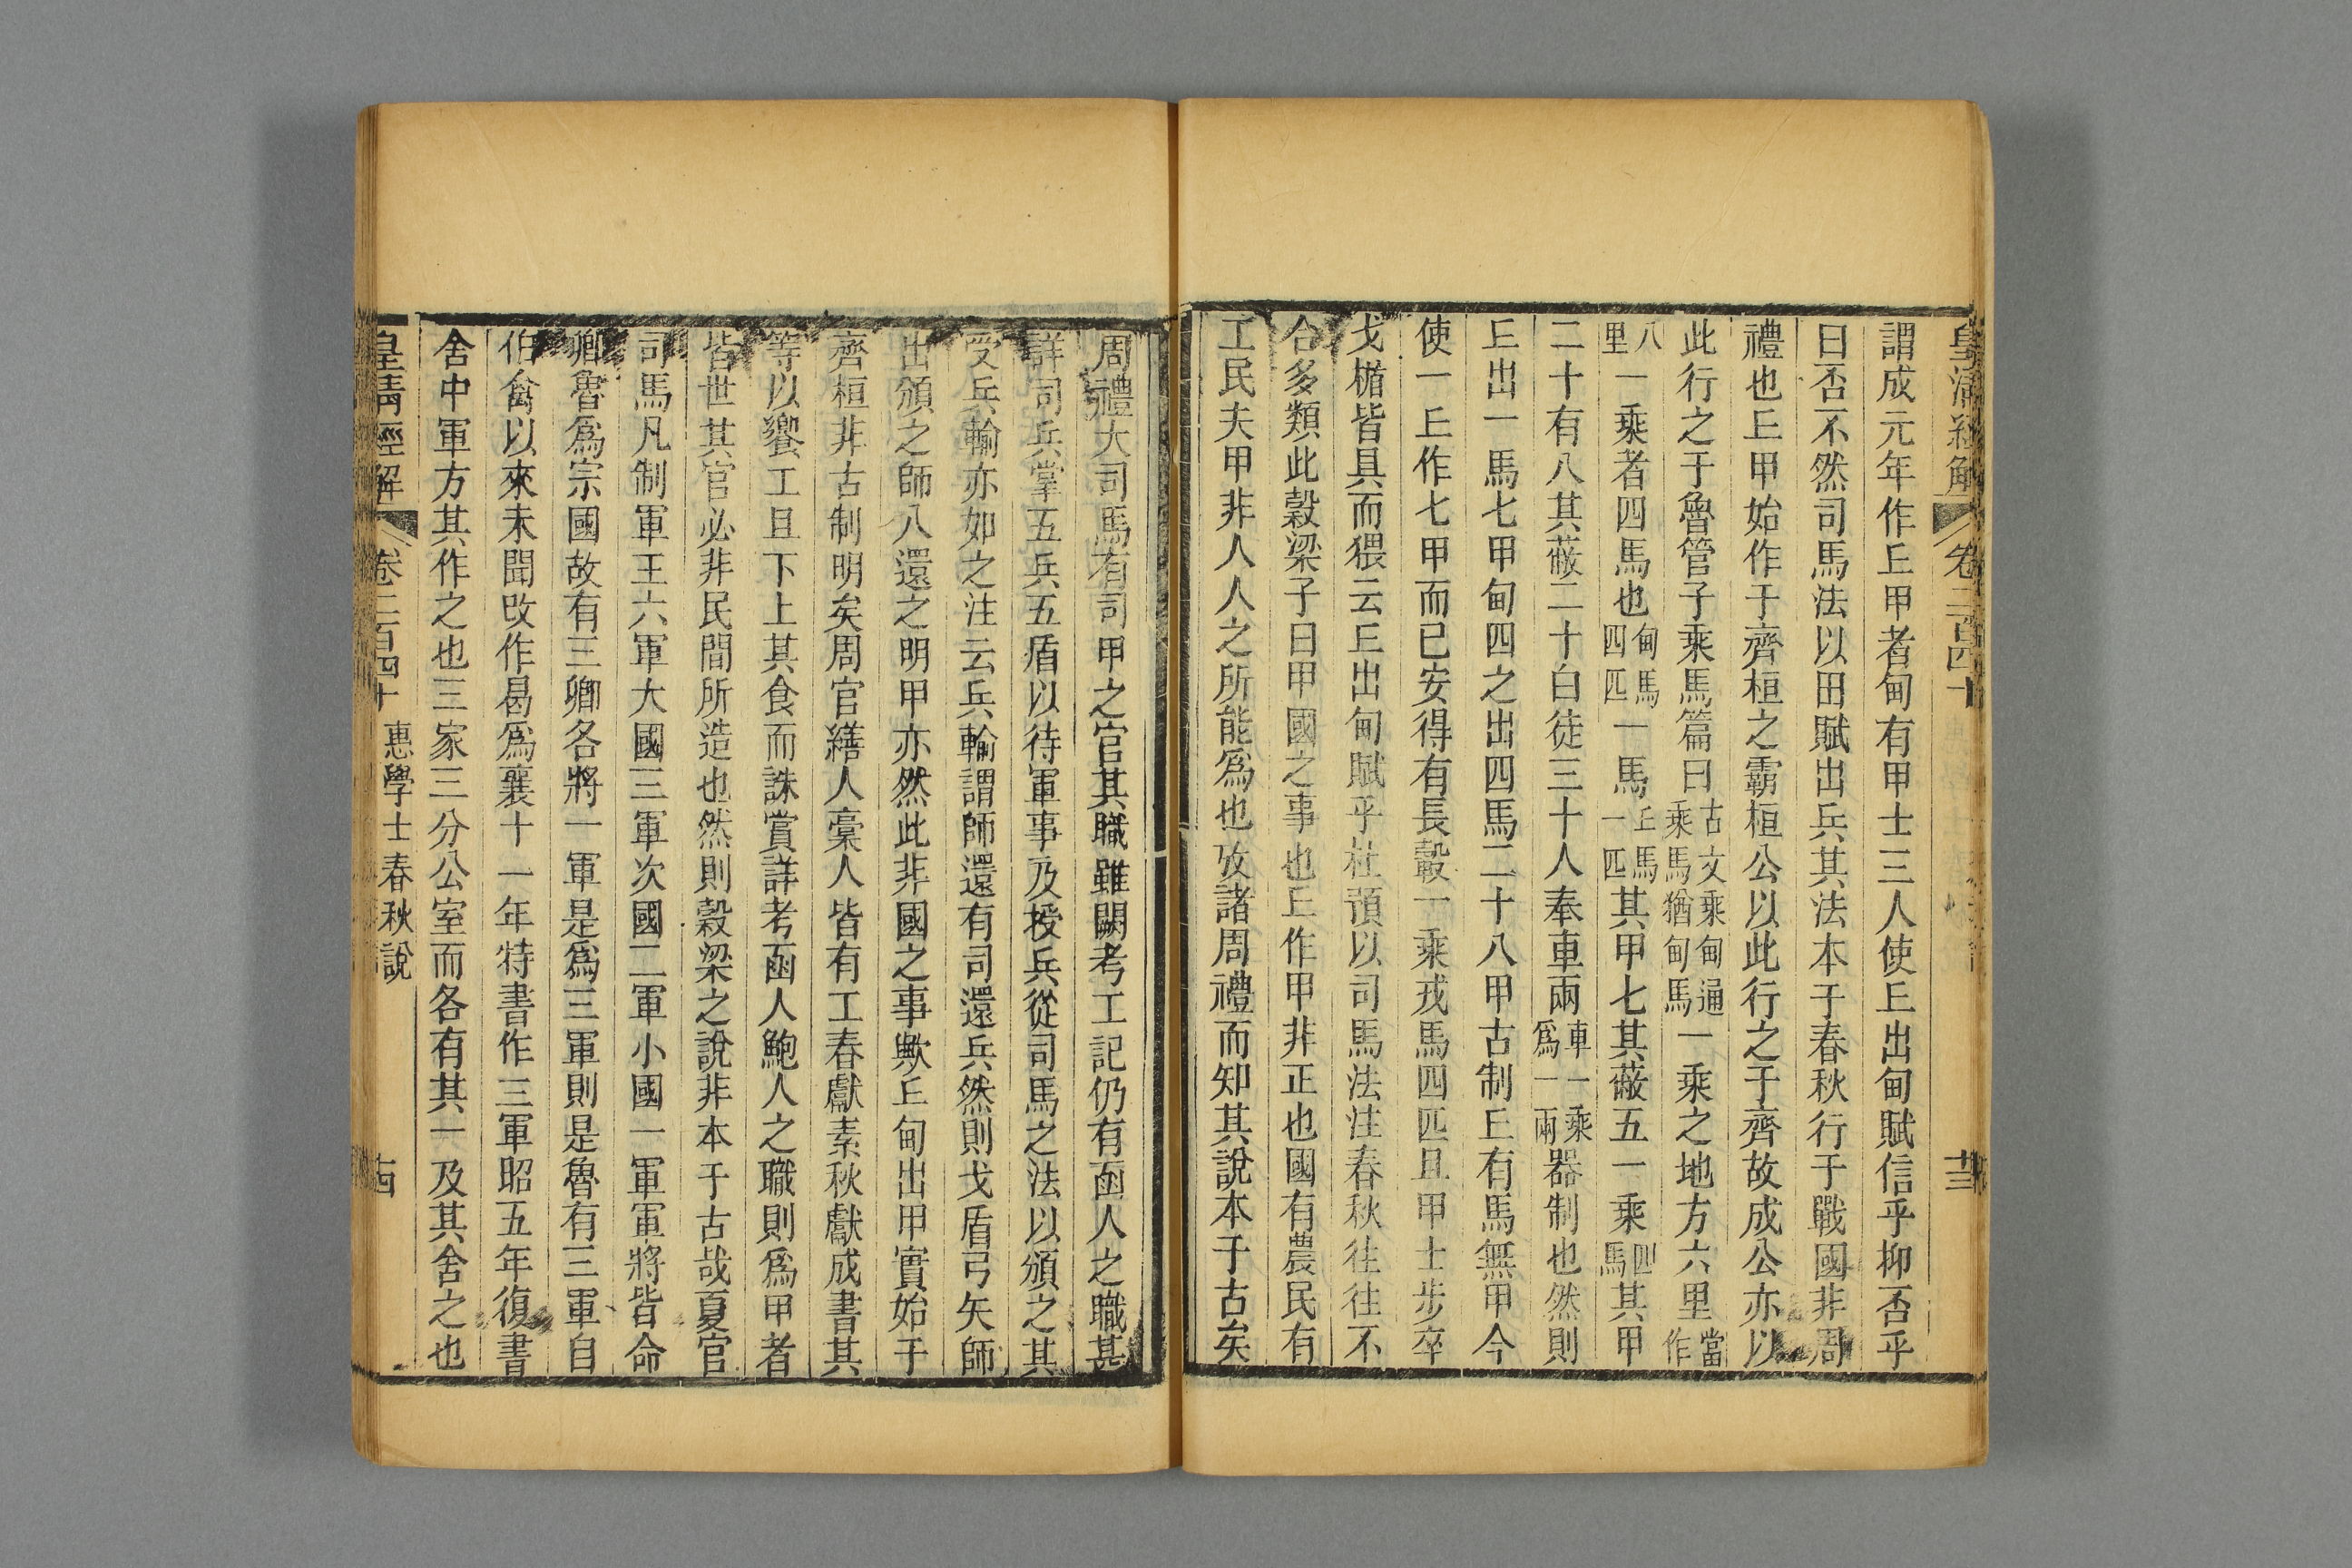 皇清經解 卷二百四十 圭
謂成元年作㐀甲者甸有甲士三人使㐀出甸賦信乎抑否乎
曰否不然司馬法以田賦出兵其法本于春秋行于戰國非周
禮也㐀甲始作于齊桓之霸桓公以此行之于齊故成公亦以
此行之于魯管子乘馬篇曰古文乘甸通乘馬猶甸馬一乘之地方六里當作
八里一乘者四馬也甸馬四匹一馬㐀馬一匹其甲七其蔽五一乘四馬其甲
二十有八其蔽二十白徒三十人奉車兩車一乘爲一兩器制也然則
㐀出一馬七甲甸四之出四馬二十八甲古制㐀有馬無甲今
使一㐀作七甲而已安得有長轂一乘戎馬四匹且甲士步卒
戈楯皆具而猥云㐀出甸賦乎杜預以司馬法注春秋往往不
合多類此穀梁子曰甲國之事也㐀作甲非正也國有農民有
工民夫甲非人人之所能爲也攷諸周禮而知其說本于古矣
周禮大司馬有司甲之官其職雖闕考工記仍有函人之職甚
詳司兵掌五兵五盾以待軍事及授兵從司馬之法以頒之其
受兵輸亦如之注云兵輸謂師還有司還兵然則戈盾弓矢師
出頒之師入還之明甲亦然此非國之事歟㐀甸出甲實始于
齊桓非古制明矣周官繕人槀人皆有工春獻素秋獻成書其
等以饗工且下上其食而誅賞詳考函人鮑人之職則爲甲者
皆世其官必非民間所造也然則穀梁之說非本于古哉夏官
司馬凡制軍王六軍大國三軍次國二軍小國一軍軍將皆命
卿魯爲宗國故有三卿各將一軍是爲三軍則是魯有三軍自
伯禽以來未聞改作曷爲襄十一年特書作三軍昭五年復書
舍中軍方其作之也三家三分公室而各有其一及其舍之也
皇清經解 卷二百四十 惠學士春秋說 古